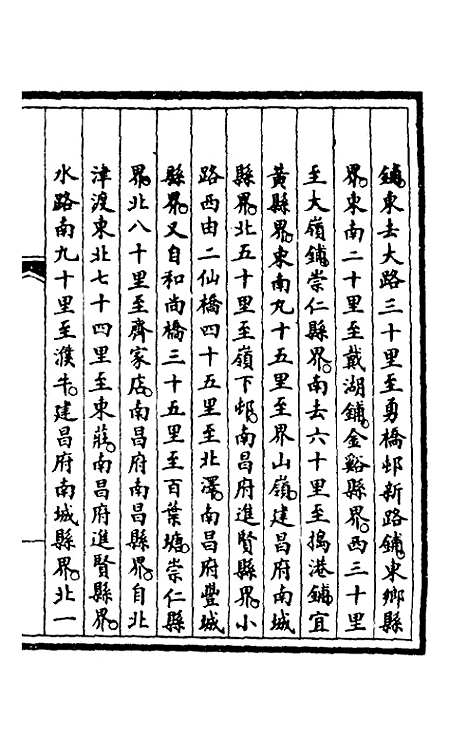 鋪東去大路三十里至勇橋邨新路鋪東鄉縣
界東南二十里至戴湖鋪金谿縣界西三十里
至大嶺鋪崇仁縣界南去六十里至搗港鋪宜
黃縣界東南九十五里至界山嶺建昌府南城
縣界北五十里至嶺下邨南昌府進賢縣界小
路西由二仙橋四十五里至北澤南昌府豐城
縣界又自和尚橋三十五里至百葉塘崇仁縣
界北八十里至齊家店南昌府南昌縣界自北
津渡東北七十四里至東莊南昌府進賢縣界
水路南九十里至濮牛建昌府南城縣界北一